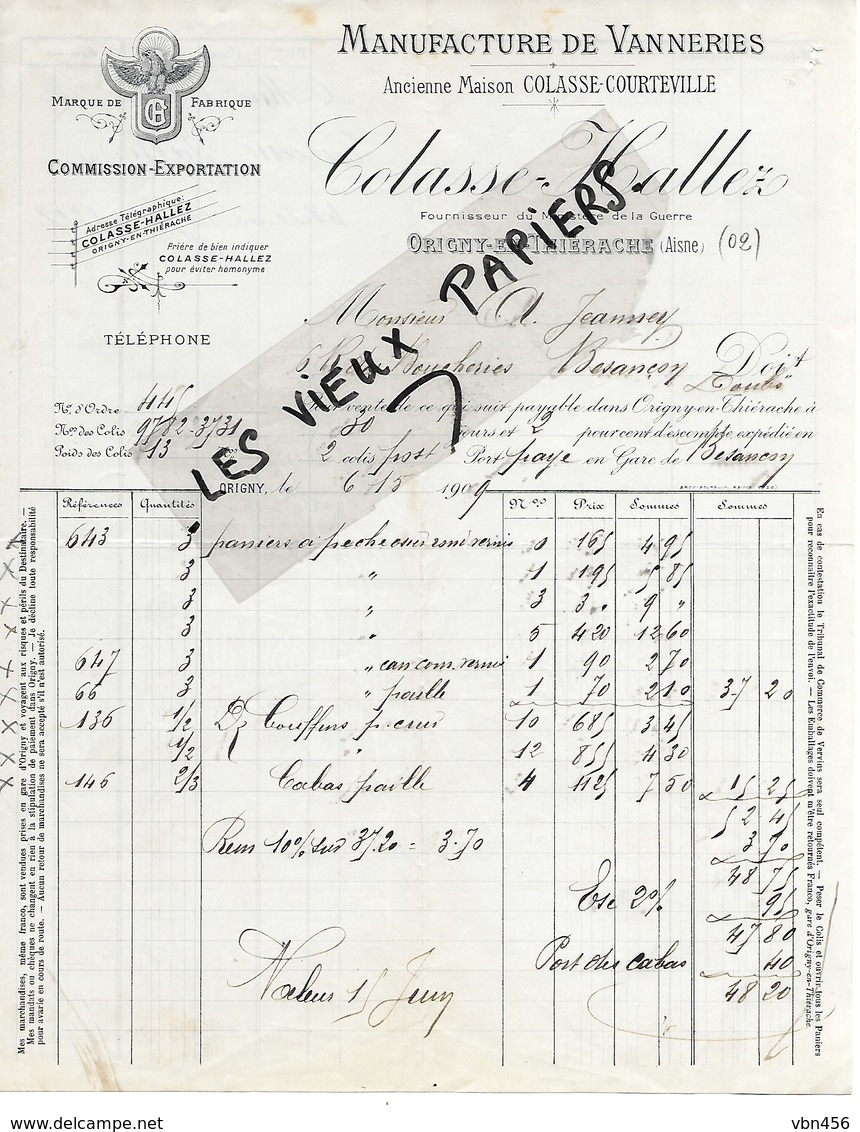 MANUFACTURE DE VANNERIES
Ancienne Maison COLASSE-COURTEVILLE
MARQUE DE FABRIQUE
CH
COMMISSION-EXPORTATION
Colasse-Hallez
Fournisseur du Ministère de la Guerre
ORIGNY-EN-THIÉRACHE (Aisne) (02)
Adresse Télégraphique:
COLASSE-HALLEZ
ORIGNY-EN-THIÉRACHE
Prière de bien indiquer
COLASSE-HALLEZ
pour éviter homonyme
LES VIEUX PAPIERS
TÉLÉPHONE
Monsieur A. Jeanney
6 Rue Boucheries Besançon Doit
Doubs
N.º d'Ordre 445
Nos des Colis 9782-3731
Poids des Colis 13
Pour vente de ce qui suit payable dans Origny-en-Thiérache à
30 jours et 2 pour cent d'escompte, expédié en
2 colis post Port payé en Gare de Besançon
ORIGNY, le 6 15 1909
Références Quantités Nos Prix Sommes Sommes
643 3 paniers a peche 0 165 4 95
3 " 1 195 5 85
3 " 3 3 " 9 "
3 " 5 420 12 60
647 3 " com. vernis 1 90 2 70
66 3 " paille 1 70 2 10 37 20
136 1/2 Dz Couffins p. crus 10 685 3 45
1/2 " 12 855 4 30
146 2/3 Cabas paille 4 1125 7 50 15 25
52 45
Rem 10% sur 37.20 = 3.70 3 70
48 75
Esc 2% 95
47 80
Port des cabas 40
48 20
Valeur 15 Juin
Mes marchandises, même franco, sont vendues prises en gare d'Origny et voyagent aux risques et périls du Destinataire. —
Mes mandats ou chèques ne changent en rien à la stipulation de paiement dans Origny. — Je décline toute responsabilité
pour avarie en cours de route. — Aucun retour de marchandises ne sera accepté s'il n'est autorisé.
En cas de contestation le Tribunal de Commerce de Vervins sera seul compétent. — Peser le Colis et ouvrir tous les Paniers
pour reconnaître l'exactitude de l'envoi. — Les Emballages doivent m'être retournés Franco, gare d'Origny-en-Thiérache.
DELCAMPE.NET
vbn456